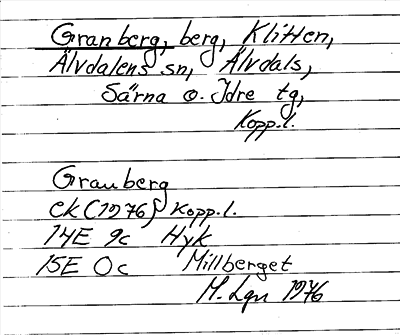 Granberg, berg, Klitten,
Älvdalens sn, Älvdals,
Särna o. Idre tg,
Kopp.l.
Granberg
ek (1976) Kopp.l.
14E 9c Hyk
15E 0c Millberget
M. Lgn 1976